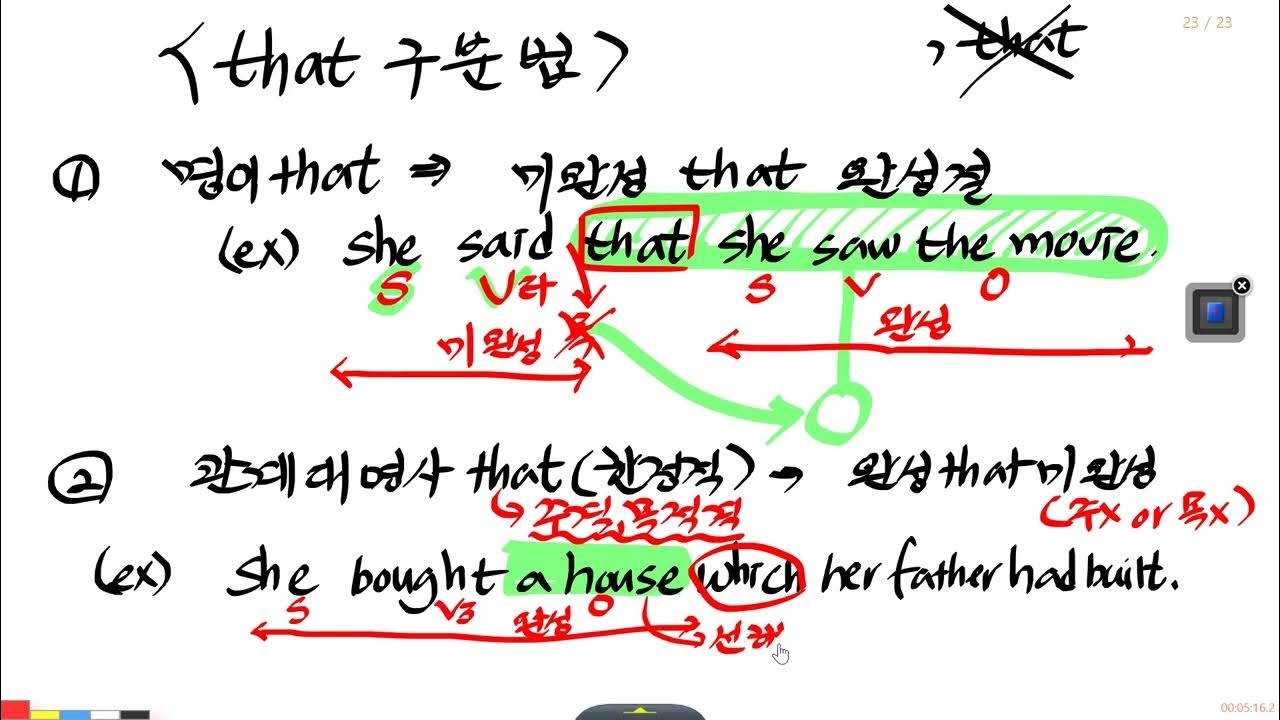 <that 구분법>
, that
23 / 23
① 명여that ⇒ 미완성 that 완성절
(ex) she said that she saw the movie.
S V타 S V O
미완성 목 완성
② 관계대명사 that (한정적) → 완성that미완성
↳ 주격, 목적격 (주X or 목X)
(ex) She bought a house which her father had built.
S V3 완성 O
선행
00:05:16.2